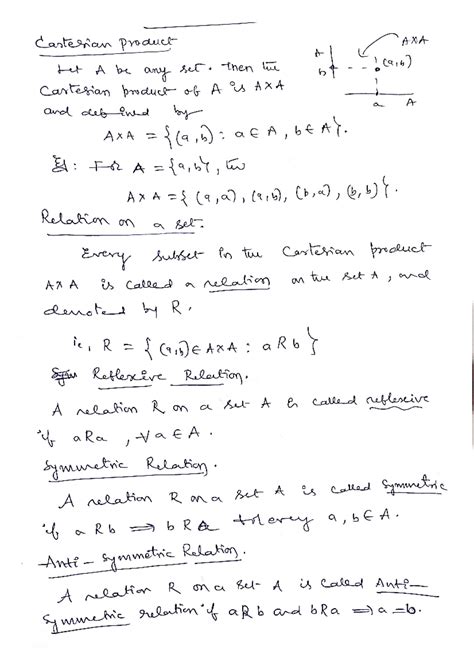 Cartesian product
Let A be any set. Then the
Cartesian product of A is A×A
and defined by
A×A = {(a,b) : a ∈ A, b ∈ A}.
A
b
A×A
(a,b)
a
A
Eg: For A = {a,b}, the
A×A = {(a,a), (a,b), (b,a), (b,b)}.
Relation on a set.
Every subset in the Cartesian product
A×A is called a relation on the set A, and
denoted by R.
ie, R = {(a,b) ∈ A×A : aRb}
Reflexive Relation.
A relation R on a set A is called reflexive
if aRa, ∀ a ∈ A.
Symmetric Relation.
A relation R on a set A is called Symmetric
if aRb ⟹ bRa for every a, b ∈ A.
Anti-Symmetric Relation.
A relation R on a set A is called Anti-
Symmetric relation if aRb and bRa ⟹ a=b.